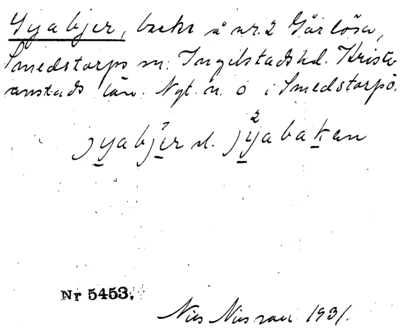 Gyabjer, backe å nr. 2 Gärlösa,
Smedstorps sn. Ingelstads hd. Kristi-
anstads län. Nyt. n. ö i Smedstorp.
jyabjer el. jyabakan
Nr 5453.
Nils Nilsson 1931.